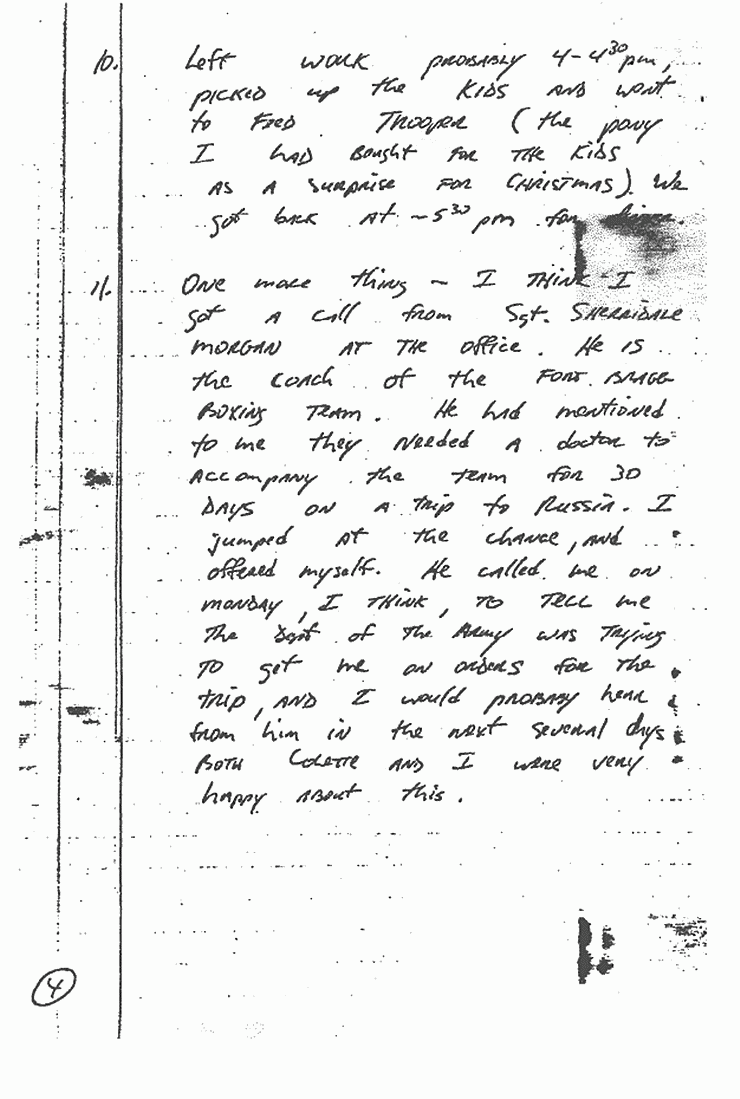 10. Left work probably 4-4³⁰ pm,
picked up the kids and went
to feed Trooper (the pony
I had bought for the kids
as a surprise for Christmas). We
got back at ~5³⁰ pm for
11. One more thing – I think I
got a call from Sgt. Sherridale
Morgan at the office. He is
the coach of the Fort Bragg
Boxing Team. He had mentioned
to me they needed a doctor to
accompany the team for 30
days on a trip to Russia. I
jumped at the chance, and
offered myself. He called me on
Monday, I think, to tell me
the Dept of the Army was trying
to get me on orders for the
trip, and I would probably hear
from him in the next several days
Both Colette and I were very
happy about this.
4